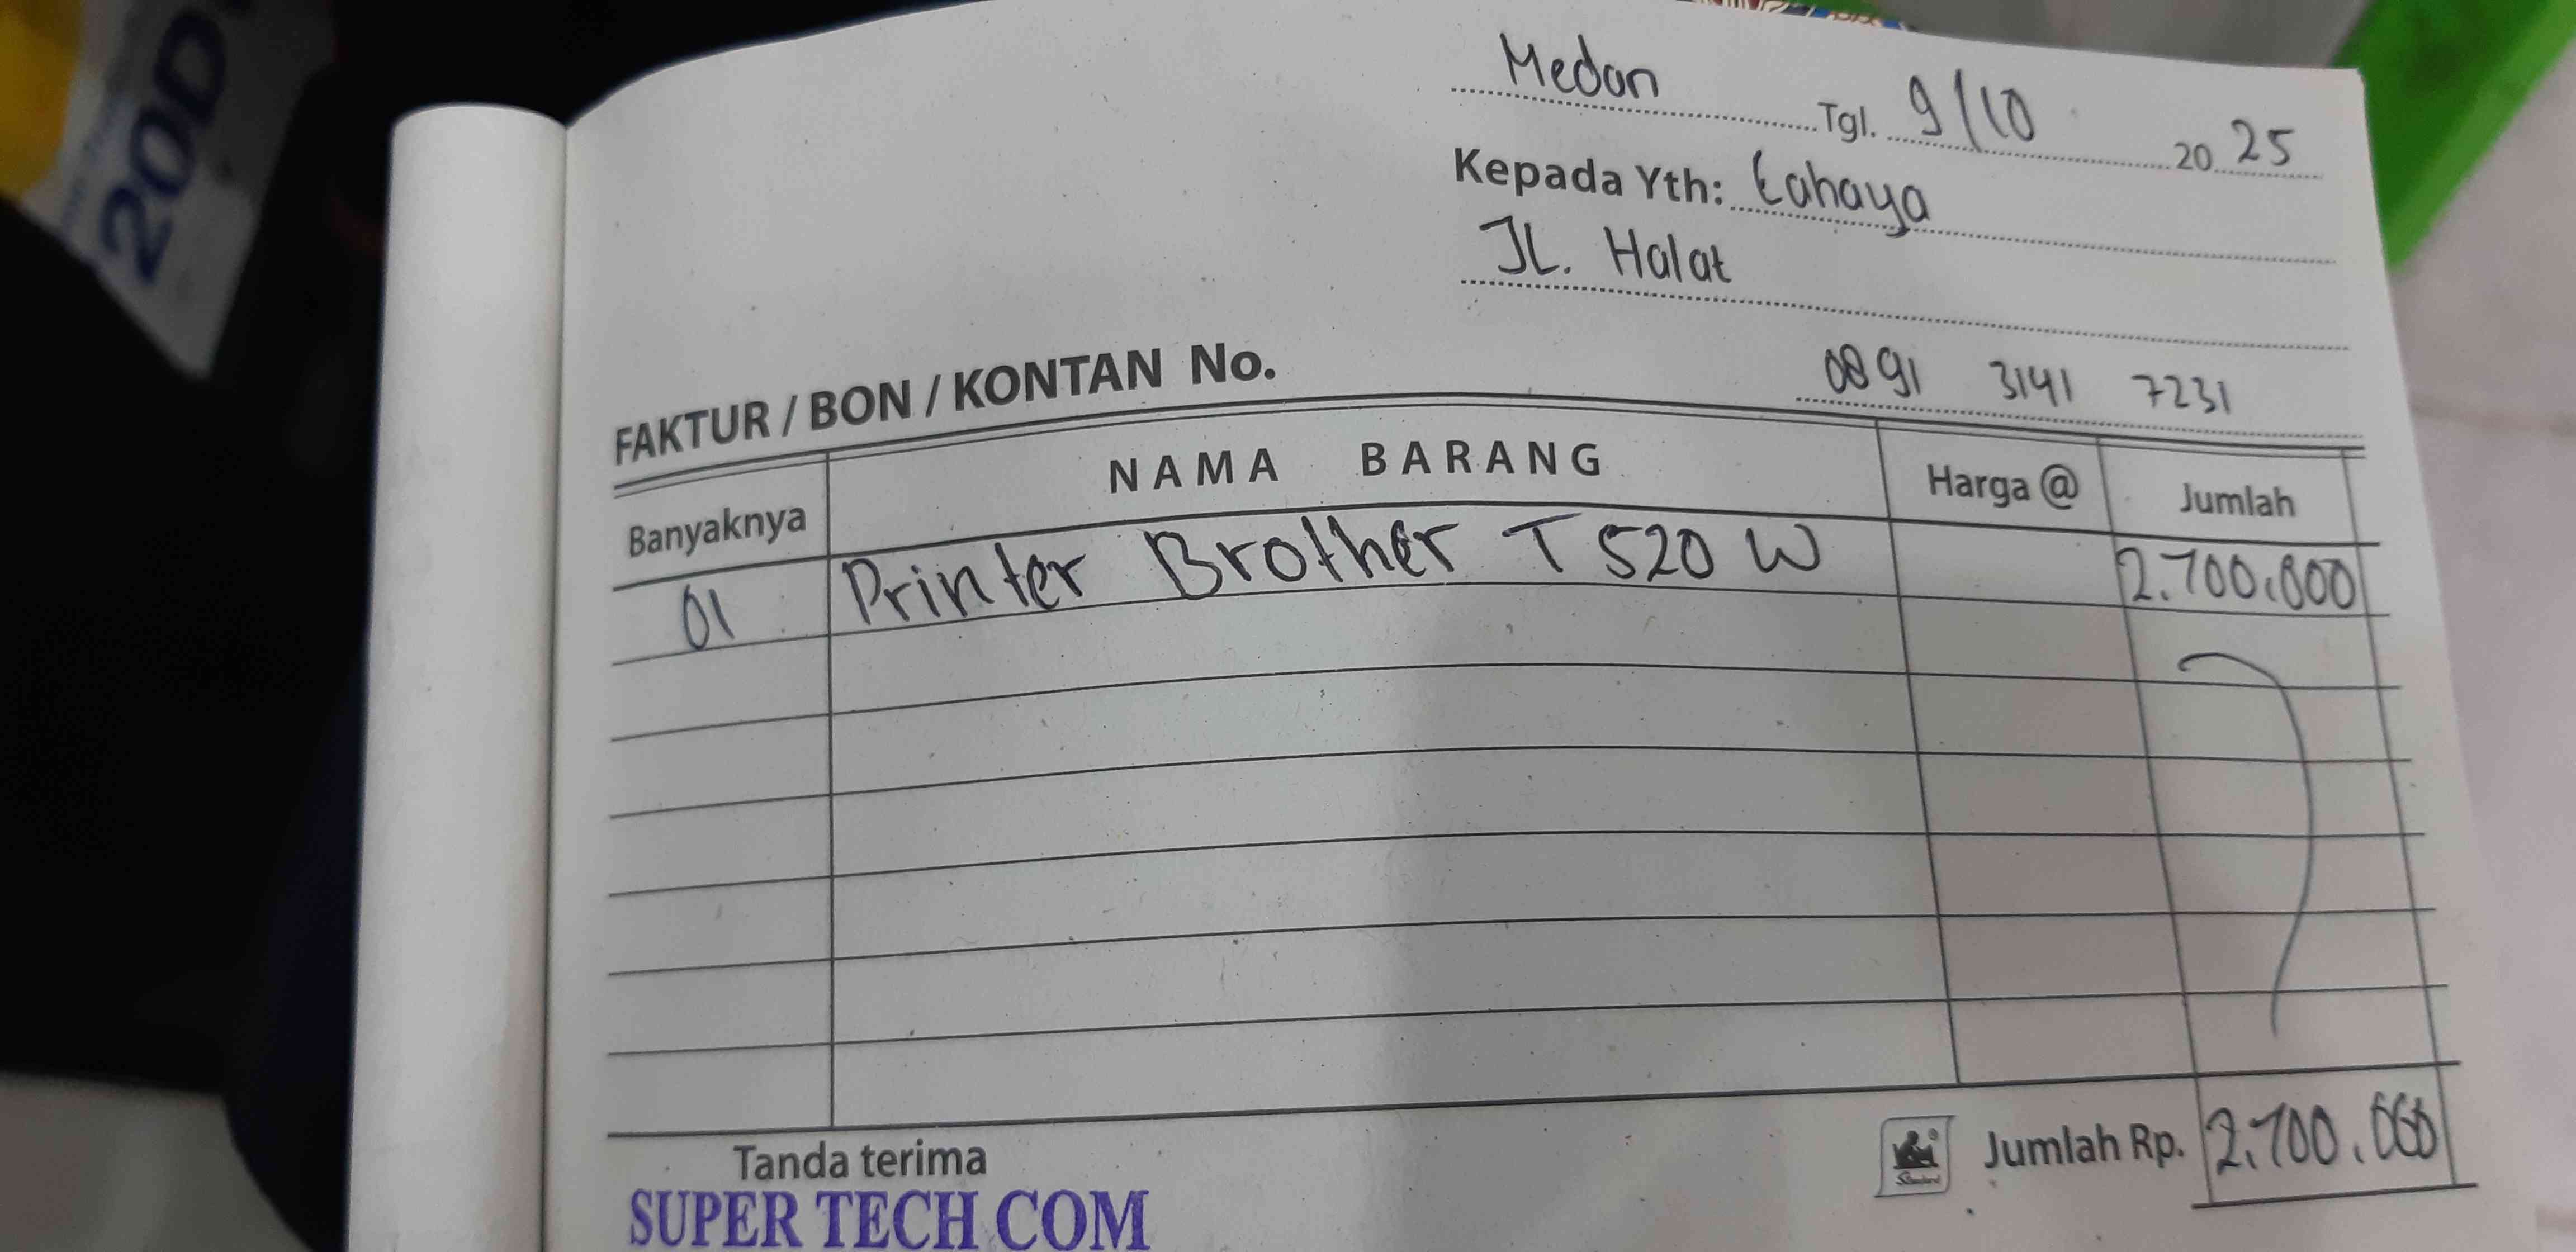 20D
Medan Tgl. 9/10 2025
Kepada Yth: Cahaya
JL. Halat
0891 3141 7231
FAKTUR / BON / KONTAN No.
Banyaknya NAMA BARANG Harga @ Jumlah
01 Printer Brother T520 W 2.700.000
Tanda terima Jumlah Rp. 2.700.000
SUPER TECH COM